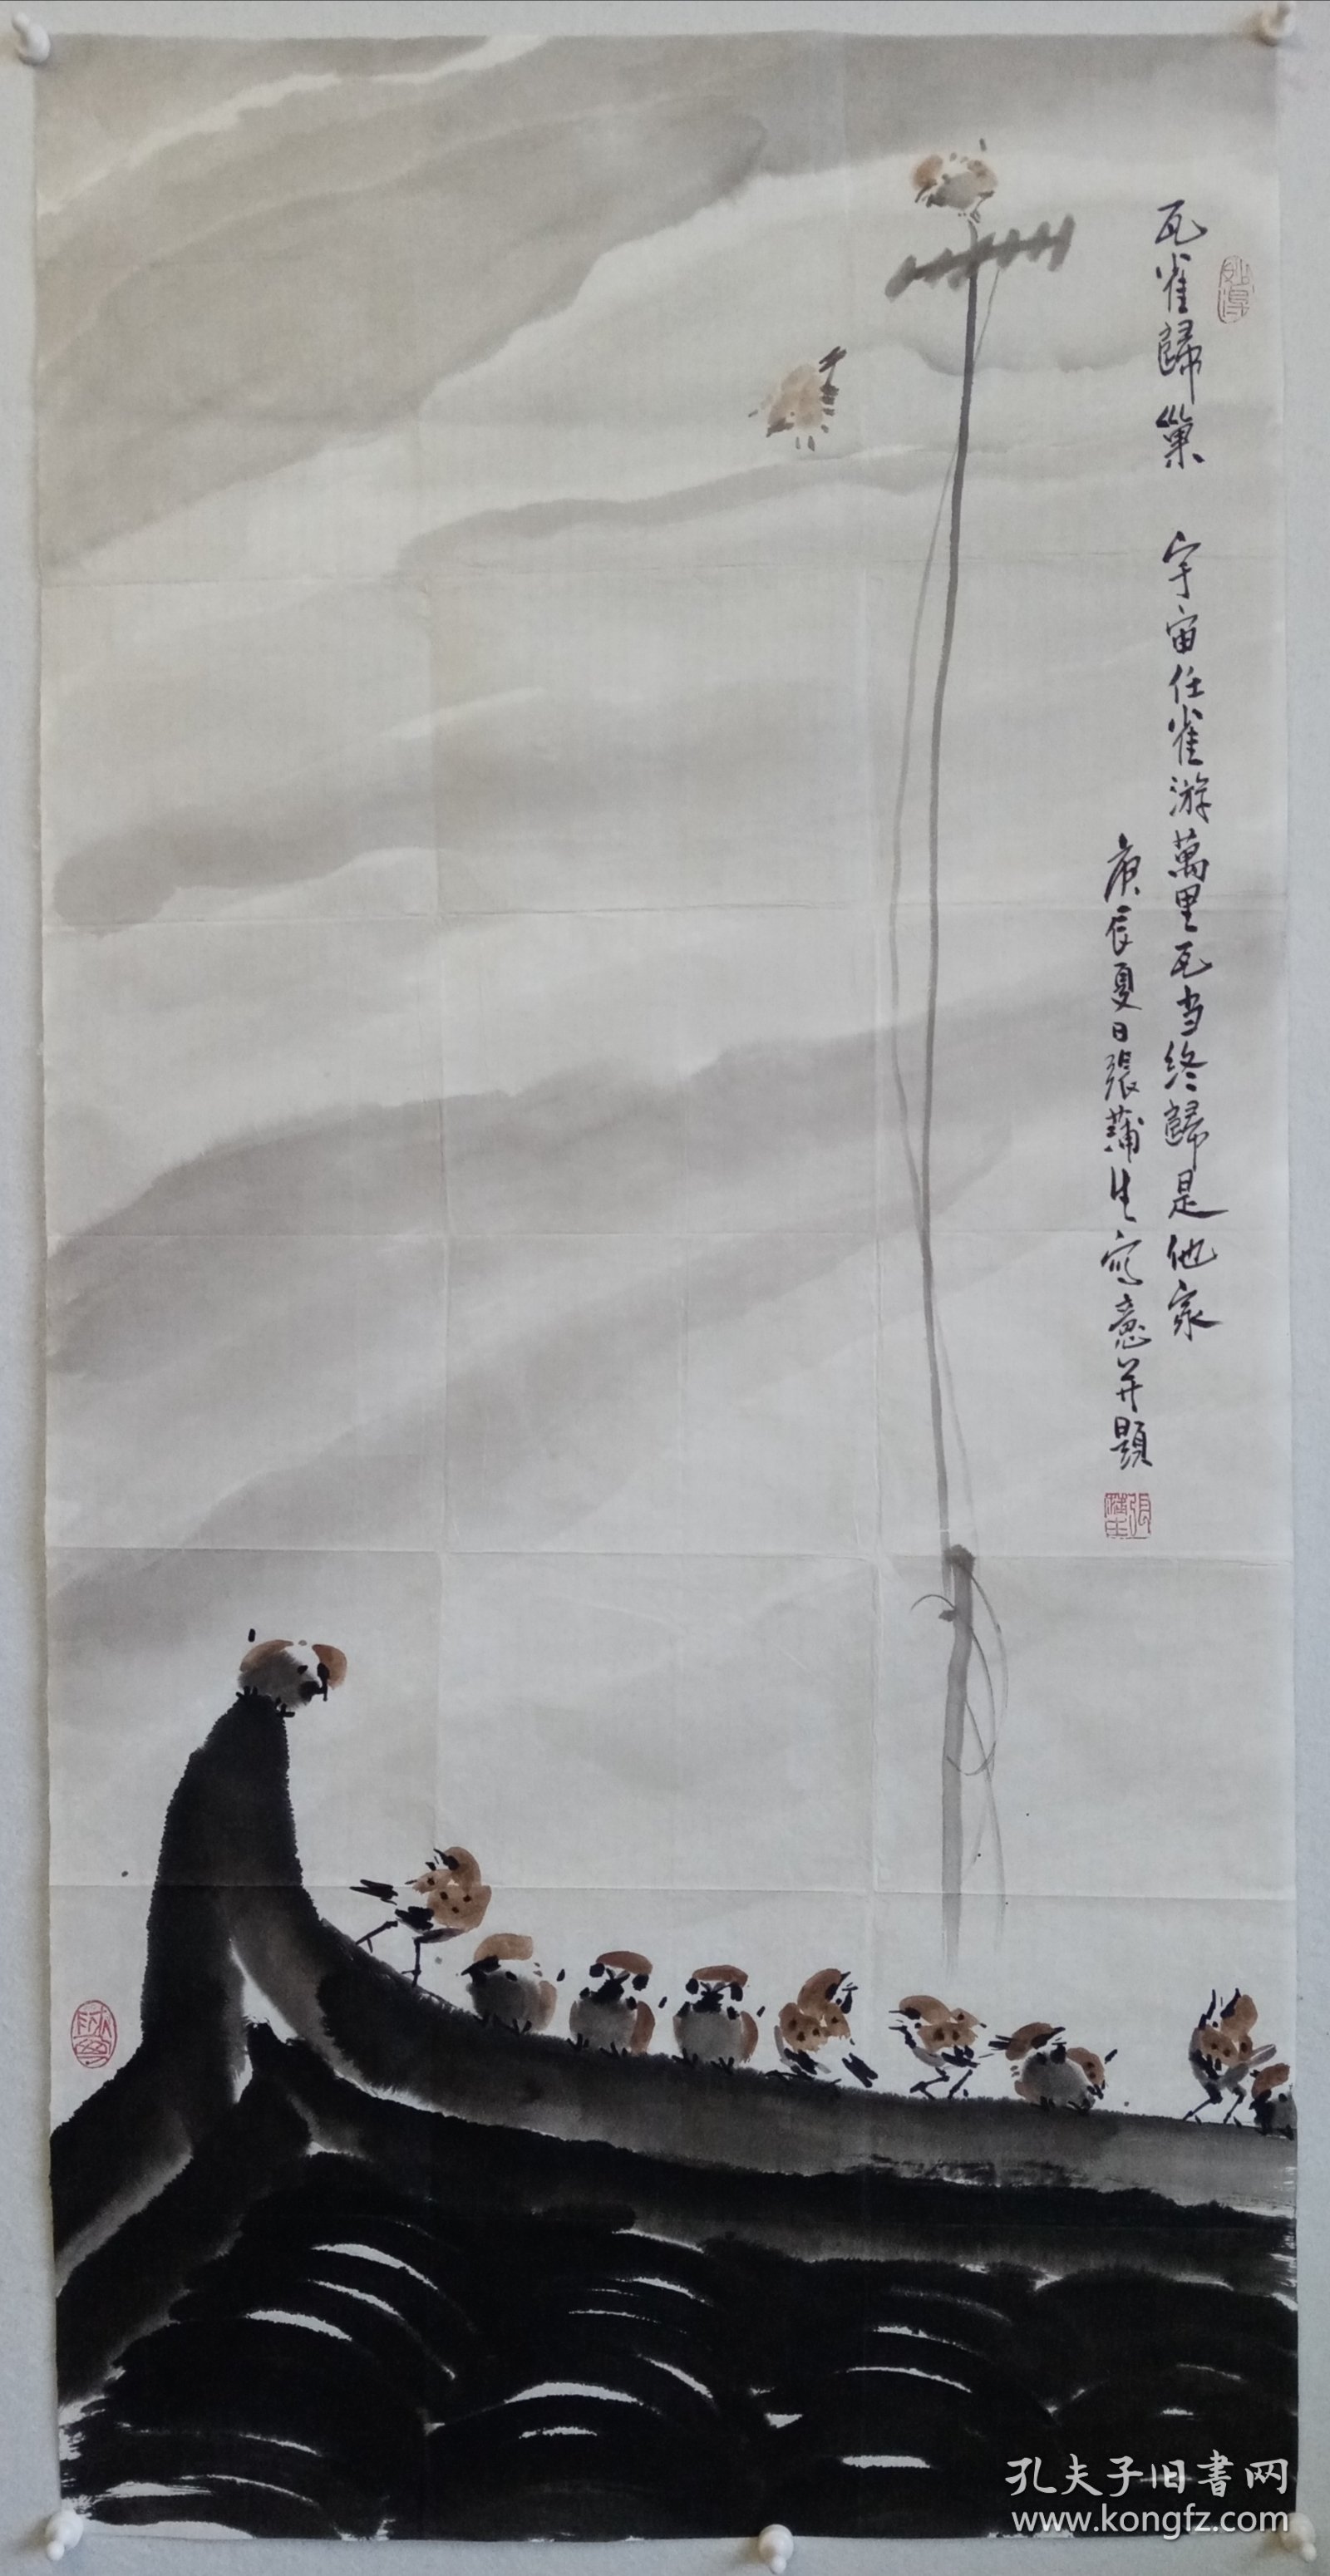 瓦雀歸巢 宇宙任雀游萬里瓦当終歸是他家
庚辰夏日張蒲生寫意并題
張蒲生
孔夫子旧書网
www.kongfz.com